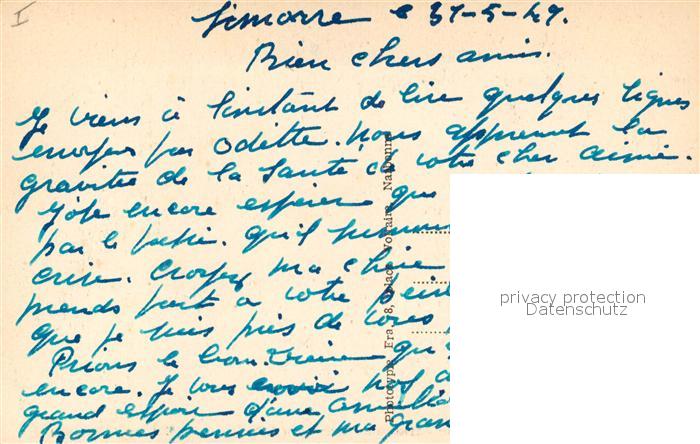 I
Simorre le 31-5-49.
Bien chers amis.
Je viens à l'instant de lire quelques lignes
envoyées par Odette. nous apprenant la
gravitée de la Santé de votre cher aimé.
J'ose encore espérer que
par le passé. qu'il
crise. Croyez ma chère
prends part a votre peine
que je suis près de vous
Prions la bonne qu'
encore. Je vous nos
grand espoir d'une
Bonnes pensées et ma gran
Phototypie Era, 8, place Voltaire, Narbonne
privacy protection
Datenschutz